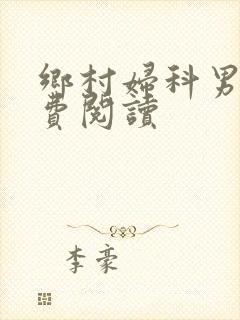 鄉村婦科男
費閱讀
李豪